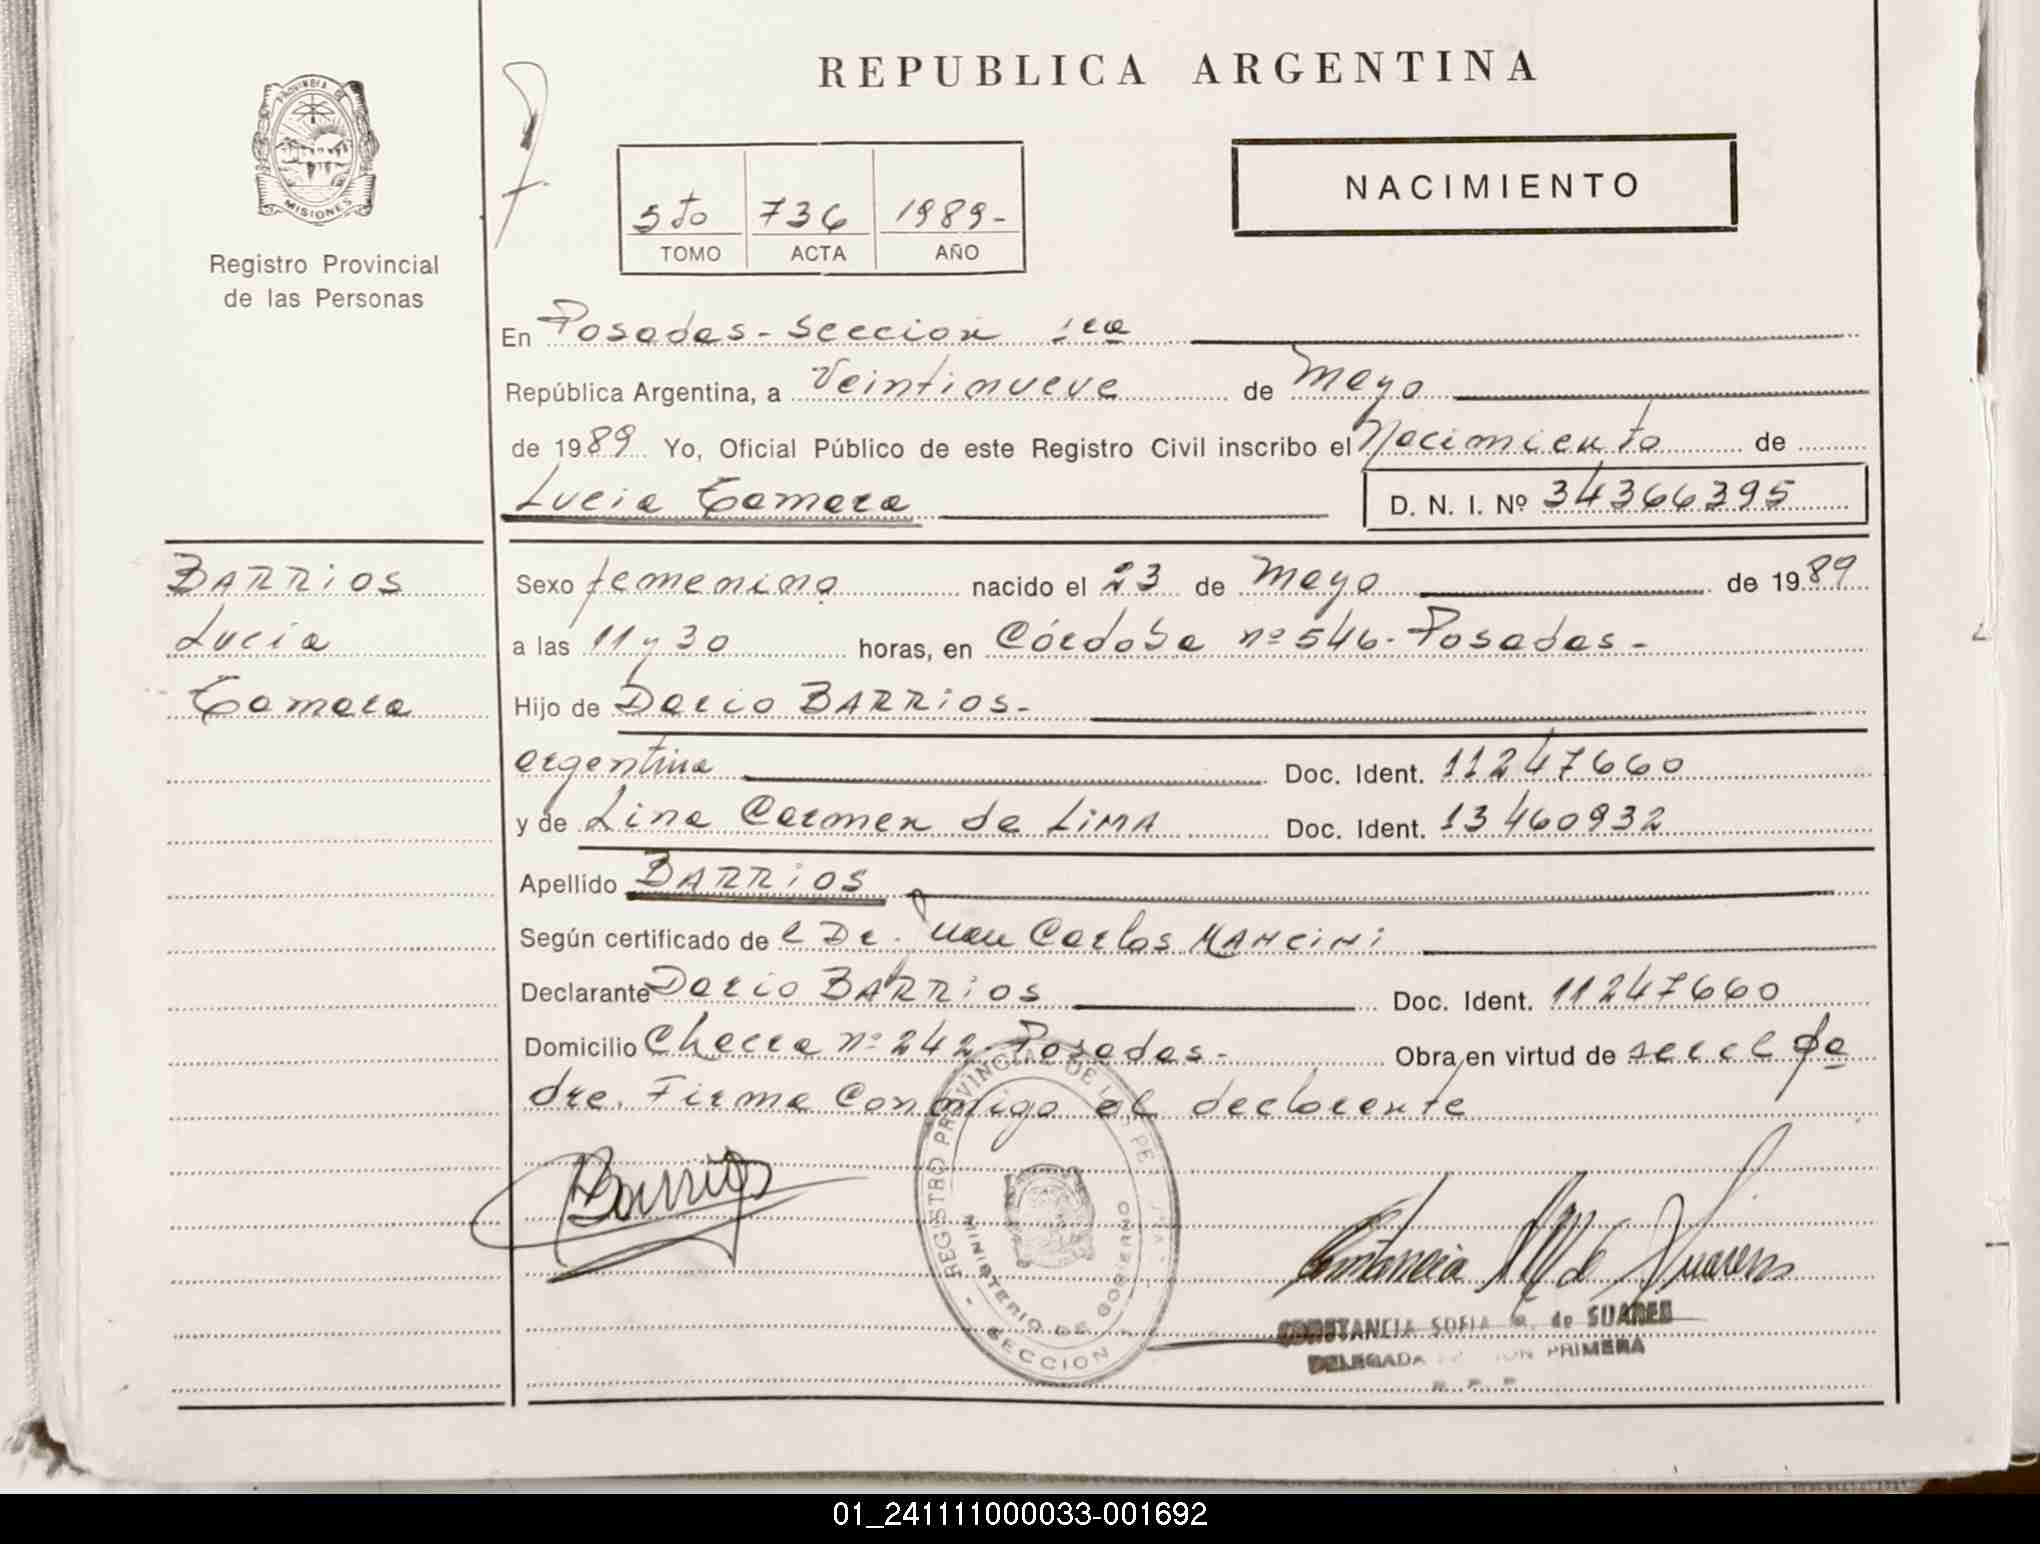 REPUBLICA ARGENTINA
PROVINCIA DE
MISIONES
Registro Provincial
de las Personas
5to 736 1989-
TOMO ACTA AÑO
NACIMIENTO
En Posadas - Seccion 1ra
República Argentina, a Veintinueve de Mayo
de 1989 Yo, Oficial Público de este Registro Civil inscribo el Nacimiento de
Lucia Tamara D. N. I. Nº 34366395
BARRIOS
Lucia
Tamara
Sexo femenino nacido el 23 de Mayo de 1989
a las 11 y 30 horas, en Córdoba nº 546- Posadas-
Hijo de Dario BARRIOS-
argentina Doc. Ident. 11247660
y de Lina Carmen de LIMA Doc. Ident. 13460932
Apellido BARRIOS
Según certificado de l Dr. Juan Carlos MANCINI
Declarante Dario BARRIOS Doc. Ident. 11247660
Domicilio Checra nº 242- Posadas- Obra en virtud de ser el pa
dre. Firma Conmigo el declarante
Barrios
REGISTRO PROVINCIAL DE LAS PE
MINISTERIO DE GOBIERNO
- SECCION
Constancia M de Suarez
CONSTANCIA SOFIA M. de SUAREZ
DELEGADA PRIMERA
01_241111000033-001692